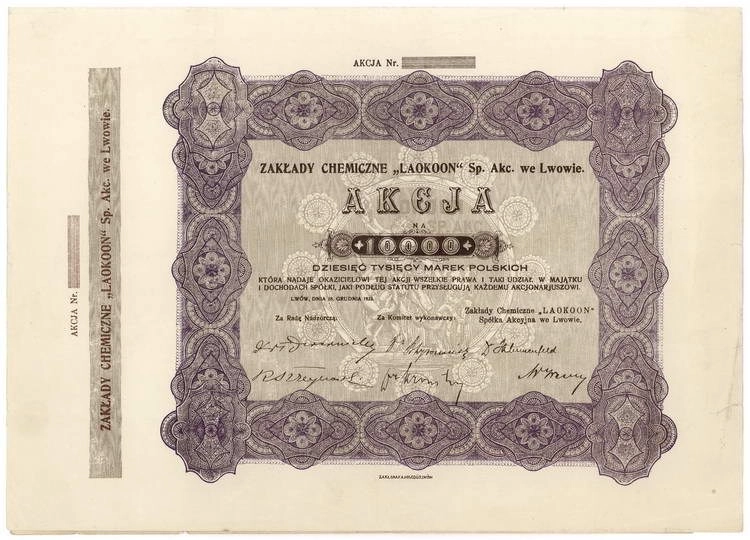 AKCJA Nr.
ZAKŁADY CHEMICZNE „LAOKOON" Sp. Akc. we Lwowie.
AKCJA
NA
10000
DZIESIĘĆ TYSIĘCY MAREK POLSKICH
KTÓRA NADAJE OKAZICIELOWI TEJ AKCJI WSZELKIE PRAWA I TAKI UDZIAŁ W MAJĄTKU
I DOCHODACH SPÓŁKI, JAKI PODŁUG STATUTU PRZYSŁUGUJĄ KAŻDEMU AKCJONARJUSZOWI.
LWÓW, DNIA GRUDNIA
Za Radę Nadzorczą: Za Komitet wykonawczy: Zakłady Chemiczne „LAOKOON"
Spółka Akcyjna we Lwowie.
AKCJA Nr.
ZAKŁADY CHEMICZNE „LAOKOON" Sp. Akc. we Lwowie.